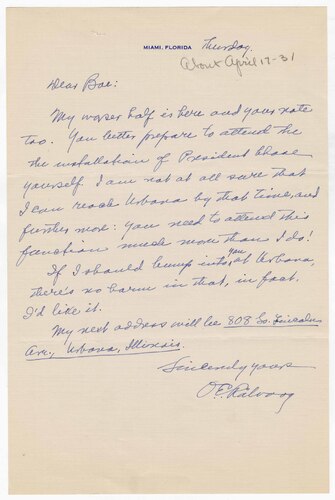 MIAMI, FLORIDA Thursday
About April 17-31
Dear Boe:
My worser half is here and your note
too. You better prepare to attend the
the installation of President Chase
yourself. I am not at all sure that
I can reach Urbana by that time, and
further more: you need to attend this
function much more than I do!
If I should bump into you at Urbana,
there's no harm in that, in fact.
I'd like it.
My next address will be 808 So. Lincoln
Ave, Urbana, Illinois.
Sincerely yours
O.E.